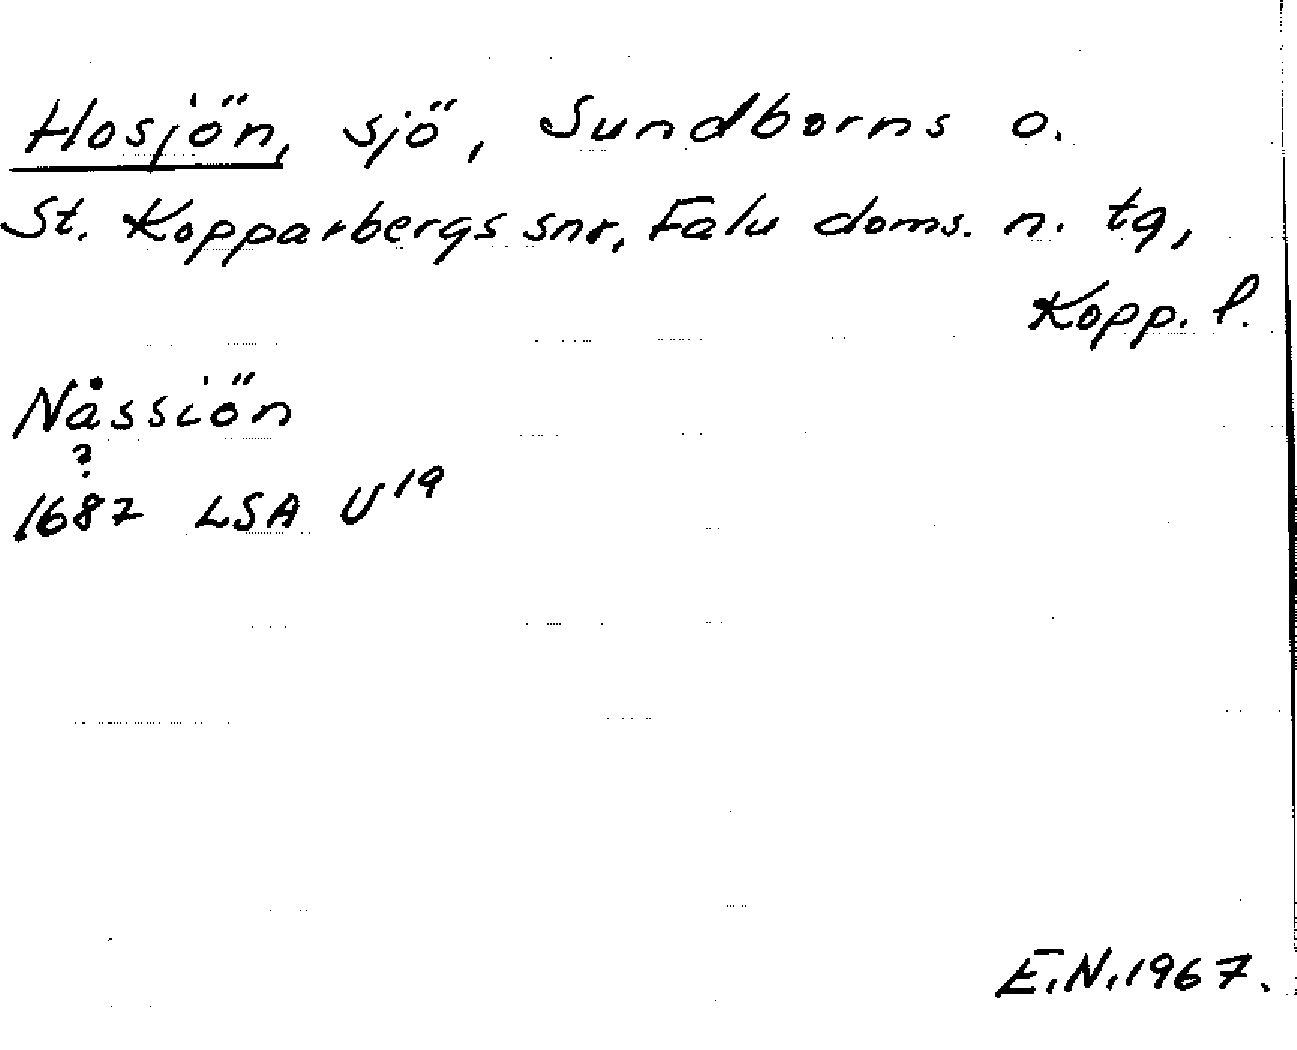 Hosjön, sjö, Sundborns o.
St. Kopparbergs snr, Falu doms. n. tg,
Kopp. l.
Nåssiön
?
1687 LSA U19
E.N.1967.